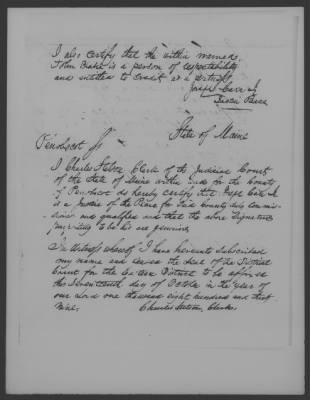 I also certify that the within named
John Baker is a person of respectability
and entitled to credit as a witness
Joseph Carr
Justice Peace
State of Maine
Penobscot Ss
I Charles Stetson Clerk of the Judicial Court
of the State of Maine within and for the County
of Penobscot do hereby certify that Joseph Carr
is a Justice of the Peace for said County duly Commis-
sioned and qualified and that the above Signature
purporting to be his are genuine
In witness whereof I have hereunto subscribed
my name and caused the Seal of the District
Court for the Eastern District to be affixed
this Seventeenth day of October in the year of
our Lord one thousand eight hundred and thirty
nine. Charles Stetson, Clerk.